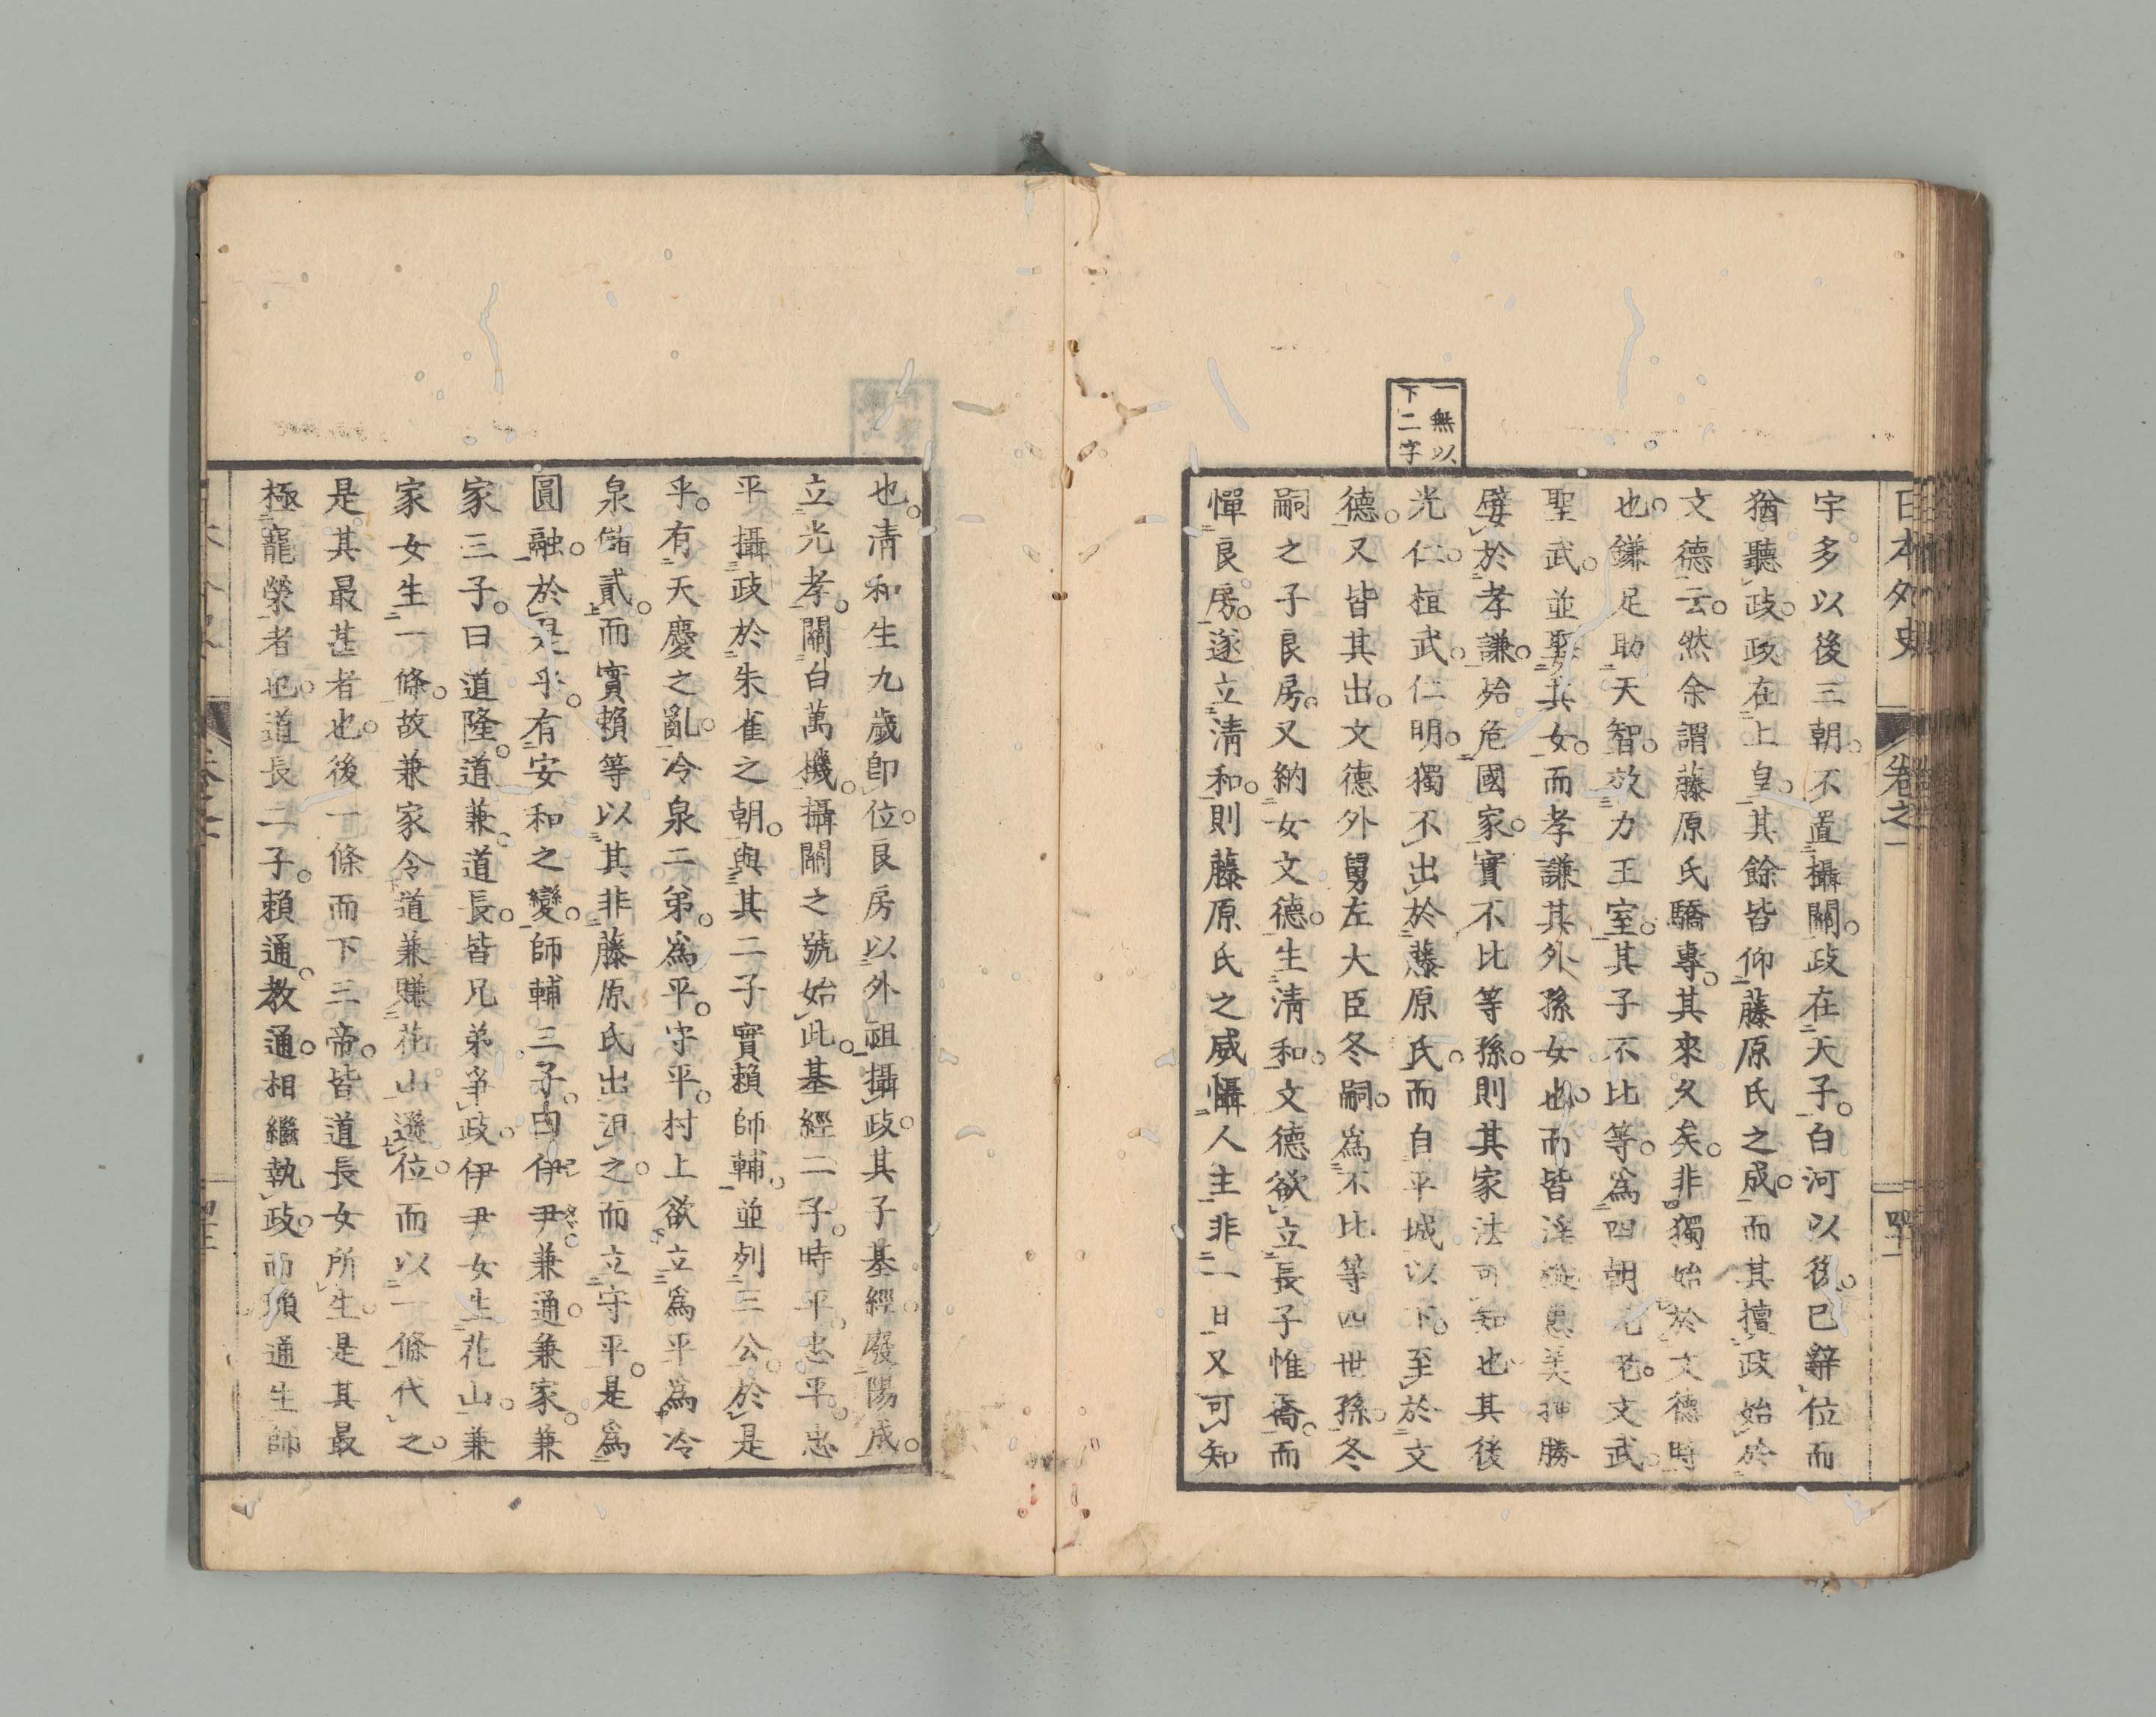 日本外史
卷之一
一無以
下二字
宇多以後三朝。不置攝關。政在天子。白河以後。已辭位而
猶聽政。政在上皇。其餘皆仰藤原氏之成。而其擅政始於
文德云。然余謂藤原氏驕專。其來久矣。非獨始於文德時
也。鎌足助天智。效力王室。其子不比等。為四朝元老。文武。
聖武。並娶其女。而孝謙其外孫女也。而皆淫 惠美押勝
嬖於孝謙。殆危國家。實不比等孫。則其家法可知也。其後
光仁。桓武。仁明。獨不出於藤原氏。而自平城以下。至於文
德。又皆其出。文德外舅左大臣冬嗣。為不比等四世孫。冬
嗣之子良房。又納女文德。生清和。文德欲立長子惟喬。而
憚良房。遂立清和。則藤原氏之威懾人主。非一日又可知
也。清和生九歲即位。良房以外祖攝政。其子基經。廢陽成。
立光孝。關白萬機。攝關之號始此。基經二子。時平。忠平。忠
平攝政於朱雀之朝。與其二子實賴師輔。並列三公。於是
乎。有天慶之亂。冷泉二弟。為平。守平。村上欲立為平為冷
泉儲貳。而實賴等以其非藤原氏出沮之。而立守平。是為
圓融。於是乎。有安和之變。師輔三子。曰伊尹。兼通。兼家。兼
家三子。曰道隆。道兼。道長。皆兄弟爭政。伊尹女生花山。兼
家女生一條。故兼家令道兼賺花山遜位。而以一條代之。
是其最甚者也。後一條而下三帝。皆道長女所生。是其最
極寵榮者也。道長二子。賴通。教通。相繼執政。而賴通生師